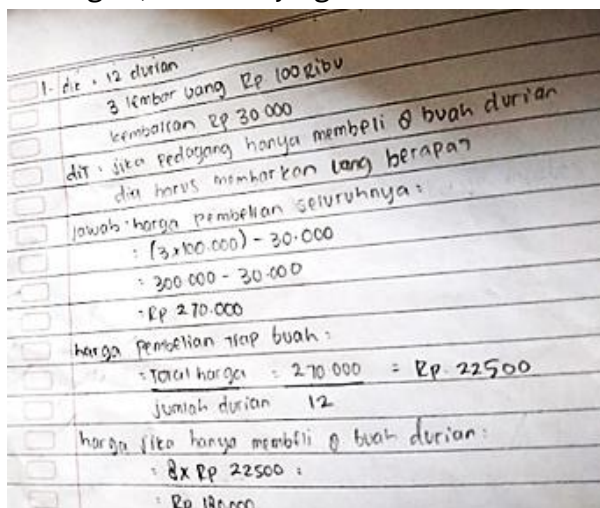 1. dik : 12 durian
3 lembar uang Rp 100 Ribu
kembalian Rp 30 000
dit : jika pedagang hanya membeli 8 buah durian
dia harus membarkan uang berapa?
jawab : harga pembelian seluruhnya :
: (3x100.000) - 30.000
: 300 000 - 30.000
: Rp 270.000
harga pembelian tiap buah :
: Total harga : 270 000 = Rp. 22500
jumlah durian 12
harga jika hanya membeli 8 buah durian :
: 8 x Rp 22500 :
: Rp 180.000